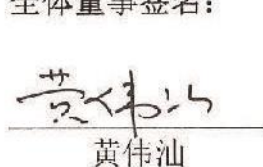 全体董事签名：
黄伟汕
黄伟汕